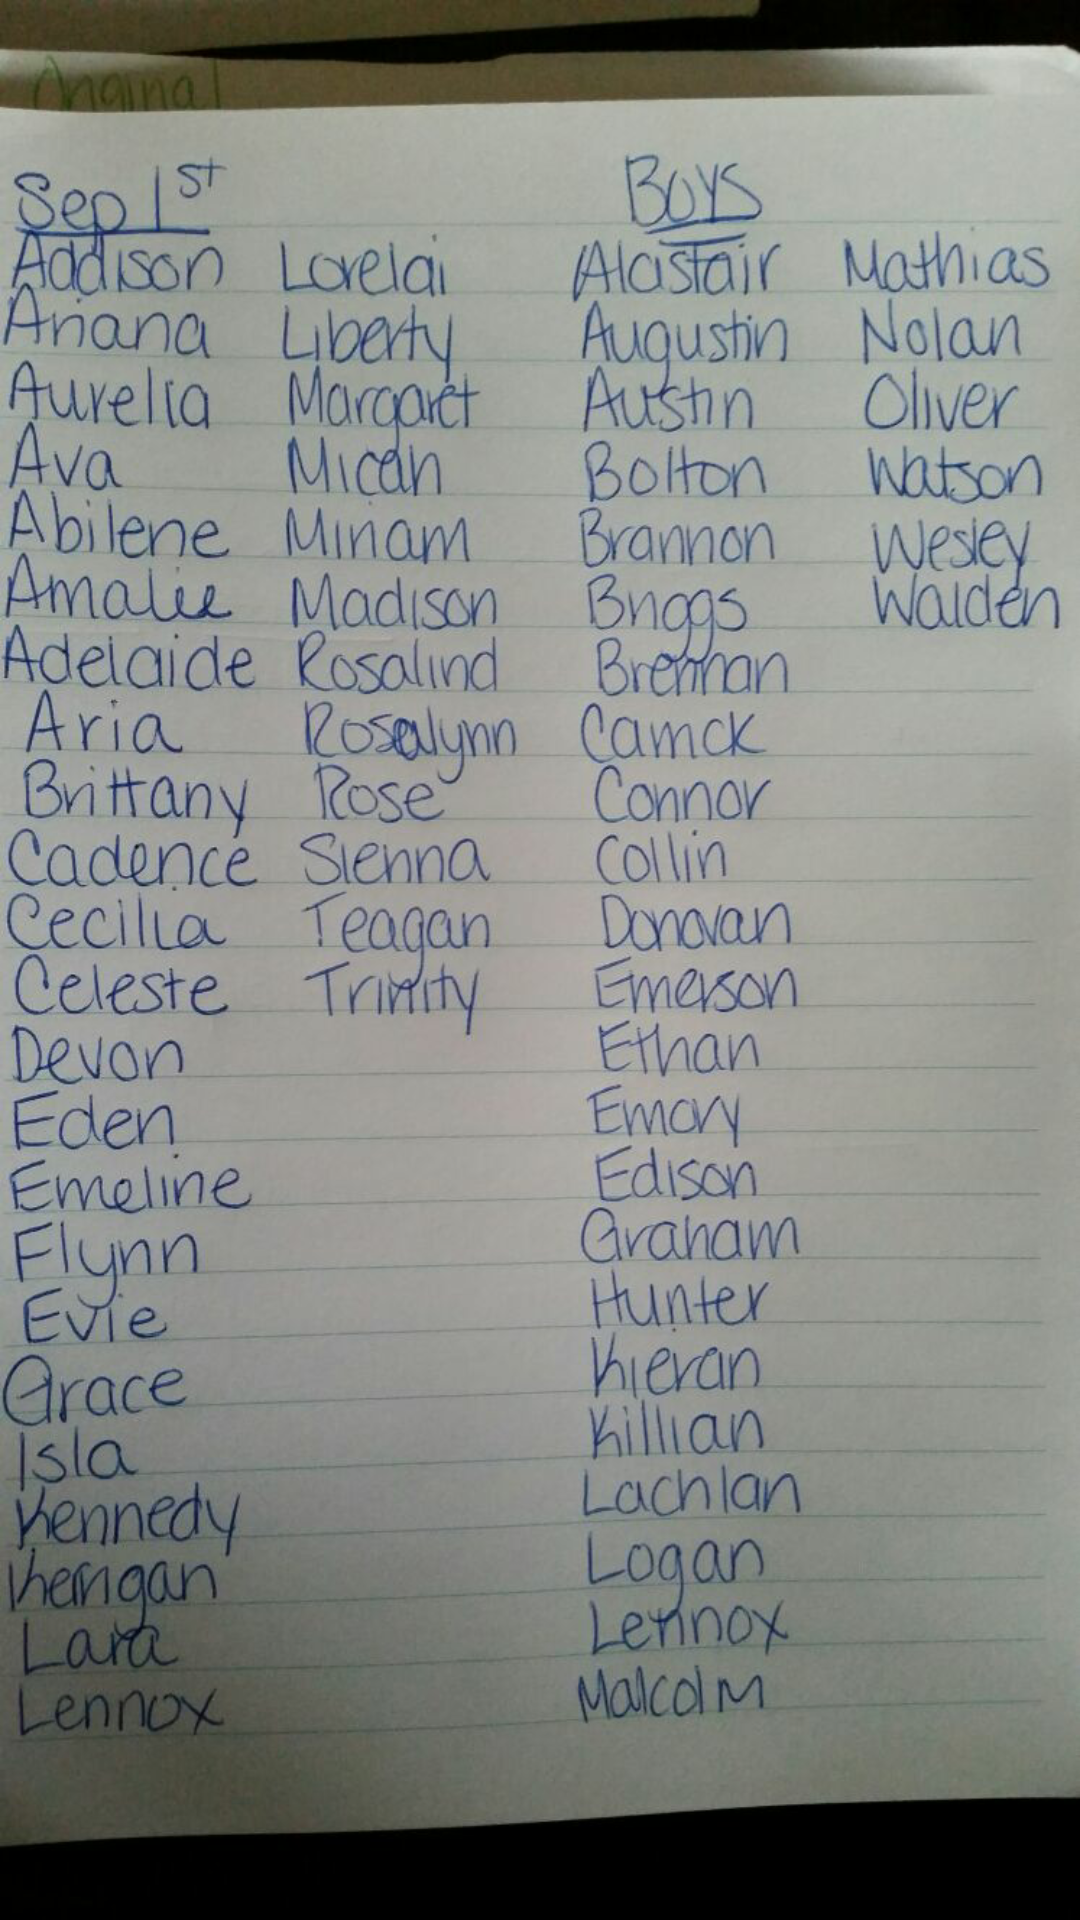 Original
Sep 1st Boys
Addison Lorelai Alastair Mathias
Ariana Liberty Augustin Nolan
Aurelia Margaret Austin Oliver
Ava Micah Bolton Watson
Abilene Miriam Brannon Wesley
Amalie Madison Briggs Walden
Adelaide Rosalind Brennan
Aria Rosalynn Carrick
Brittany Rose Connor
Cadence Sienna Collin
Cecilia Teagan Donovan
Celeste Trinity Emerson
Devon Ethan
Eden Emory
Emeline Edison
Flynn Graham
Evie Hunter
Grace Kieran
Isla Killian
Kennedy Lachlan
Kerrigan Logan
Lara Lennox
Lennox Malcolm